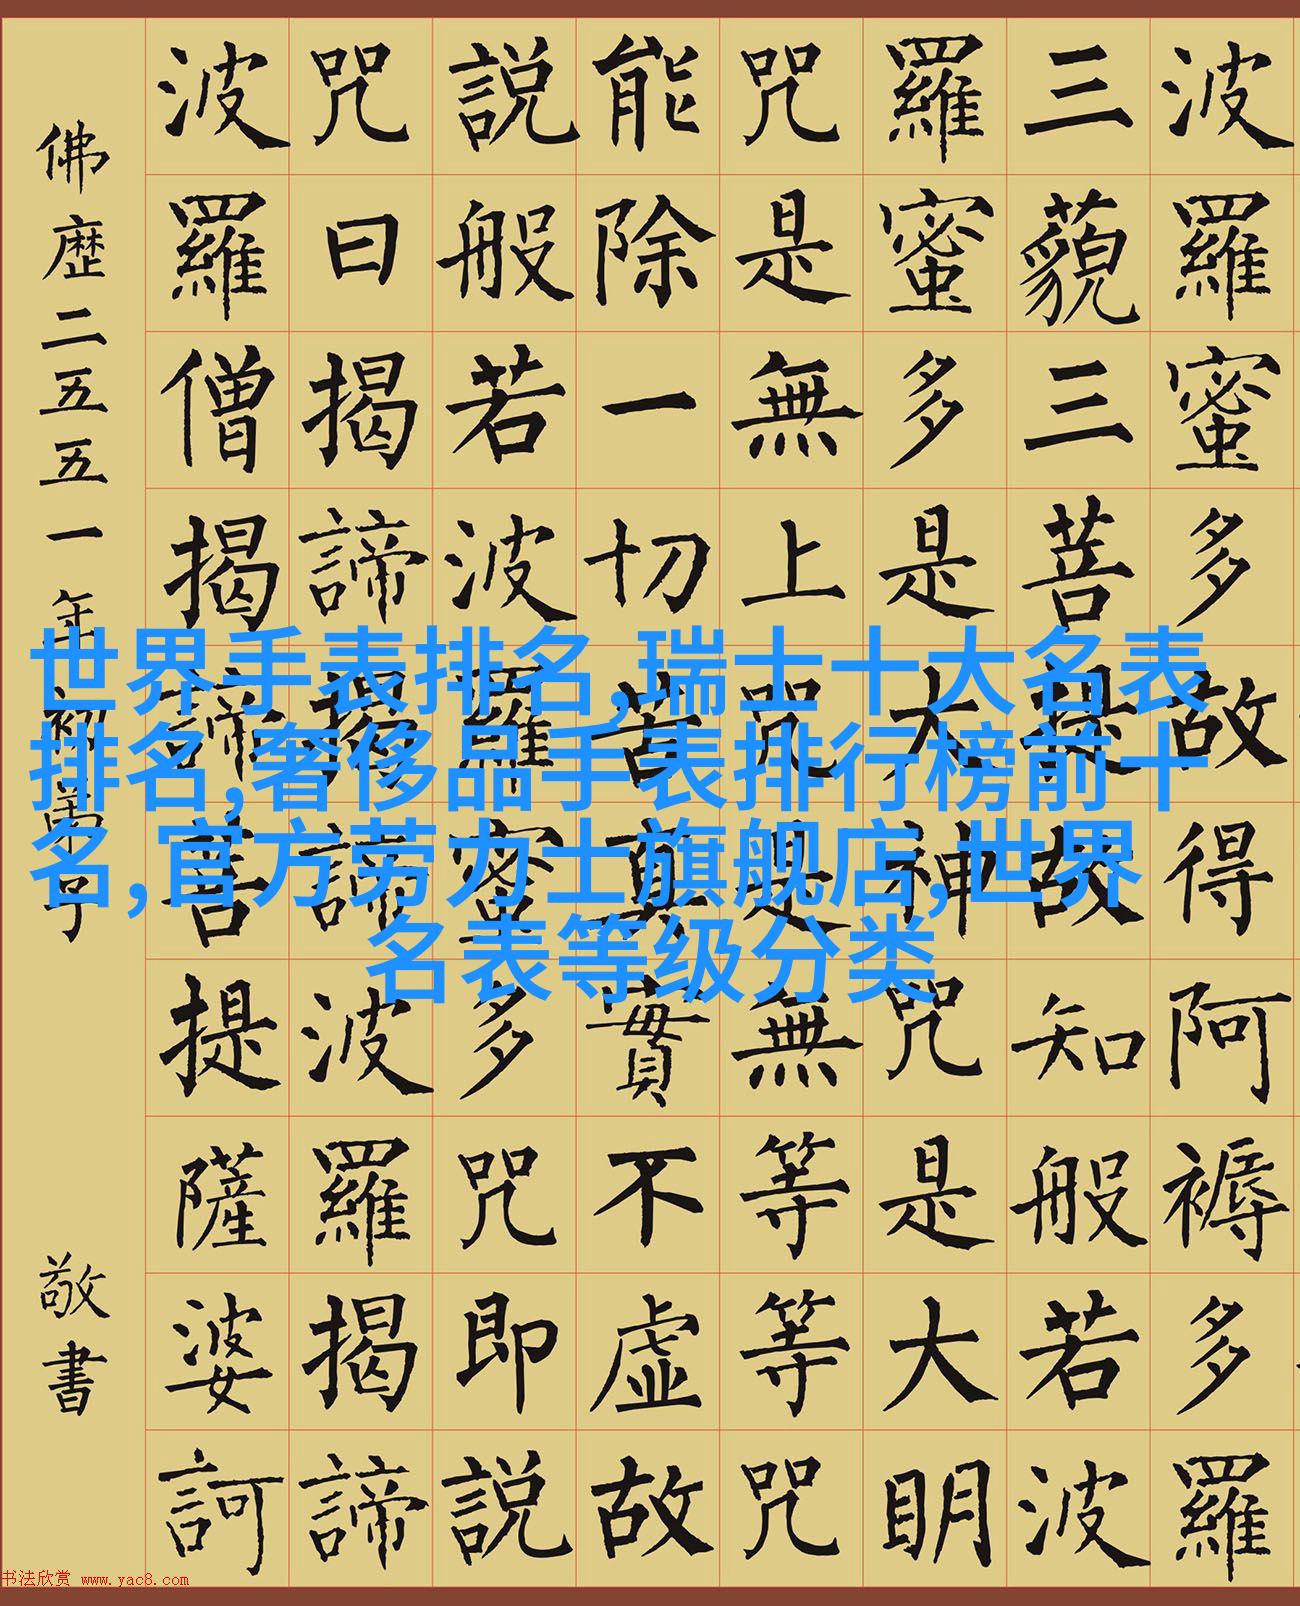 波羅蜜多故得阿褥多羅
三藐三菩提故知般若波
羅蜜多是大神咒是大明
咒是無上咒是無等等咒
能除一切苦真實不虛故
說般若波羅蜜多咒即說
咒曰揭諦揭諦波羅揭諦
波羅僧揭諦菩提薩婆訶
佛歴二五五一年
敬書
世界手表排名,瑞士十大名表
排名,奢侈品手表排行榜前十
名,官方劳力士旗舰店,世界
名表等级分类
书法欣赏 www.yac8.com